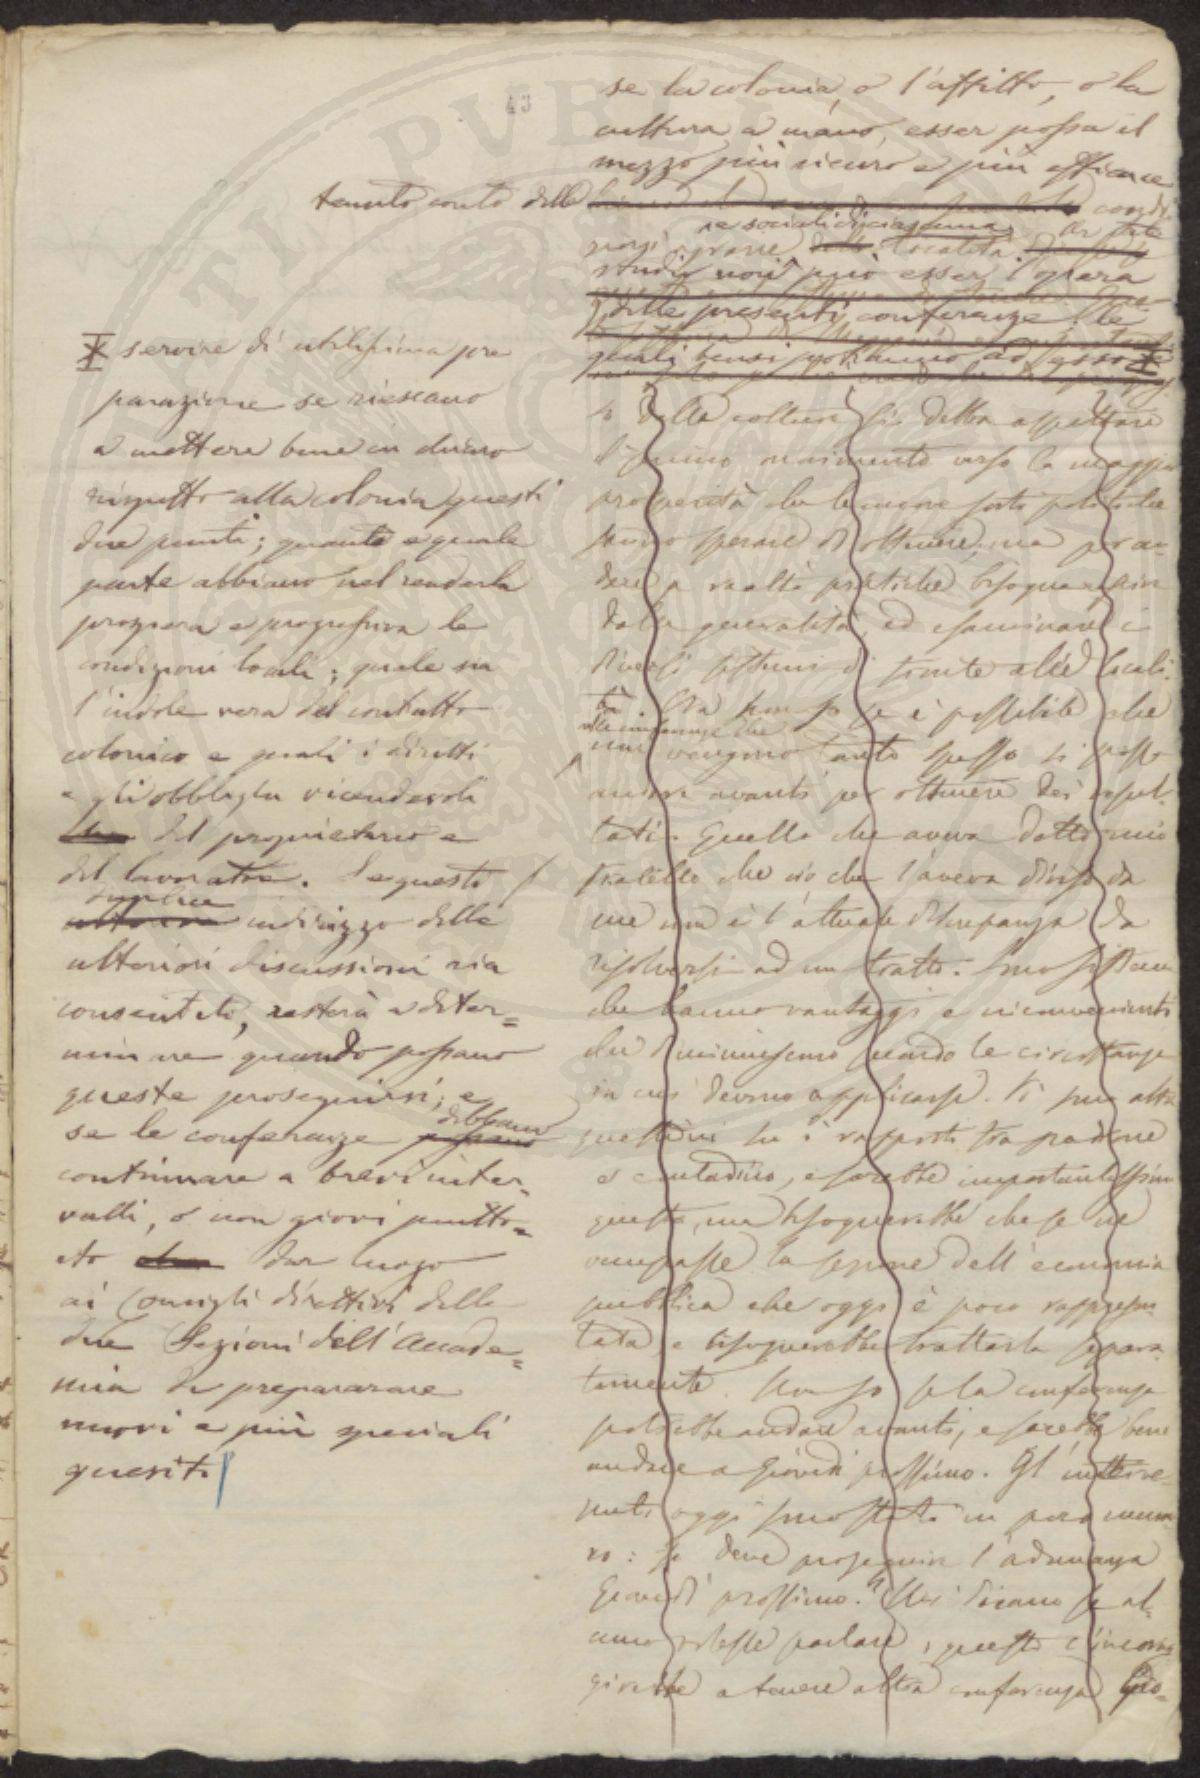 43
se la colonia, o l'affitto, o la
cultura a mano, esser possa il
mezzo più sicuro e più efficace
tenuto conto delle condi
ne sociali di ciascuna
zioni proprie località.
studio non può esser l'opera
delle presenti conferenze, le
quali bensì potranno ad esso
servire di utilissima pre
parazione se riescano
a mettere bene in chiaro
rispetto alla colonia questi
due punti; quanta e quale
parte abbiano nel renderla
prospera e progressiva le
condizioni locali; quale sia
l'indole vera del contratto
colonico e quali i diritti
e gli obblighi vicendevoli
del proprietario e
del lavoratore. Se questo
duplice
ulteriore indirizzo delle
ulteriori discussioni sia
consentito, resterà a deter=
minare quando possano
queste proseguirsi; e
debbano
se le conferenze possano
continuare a brevi inter=
valli, o non giovi piutto=
sto dar luogo
ai Consigli direttivi delle
due Sezioni dell'Accade=
mia di prepararare
nuovi e più speciali
quesiti
delle colture si debba aspettare
il primo movimento verso la maggior
prosperità che le nuove sorti politiche
fanno sperare di ottenere, ma per an-
dare a realtà pratiche bisogna uscir
dalla generalità, ed esaminare i
diversi sistemi di fronte alle locali-
tà. Ora non so se è possibile che
nelle conferenze che
non vengono tanto spesso si possa
andare avanti per ottenere dei resul-
tati. Quello che aveva detto mio
fratello che ciò che l'aveva diviso da
me non è l'attuale discrepanza da
risolversi ad un tratto. Sono sistemi
che hanno vantaggi e inconvenienti
che diminuiscono secondo le circostanze
in cui devono applicarsi. Vi può altra
questione su i rapporti tra padrone
e contadino, e sarebbe importantissima
questa, ma bisognerebbe che se ne
occupasse la sezione dell'economia
pubblica che oggi è poco rappresen
tata e bisognerebbe trattarla separa
tamente. Non so se la conferenza
potrebbe andare avanti, e sarebbe bene
andare a Giovedì prossimo. Gl'interve-
nuti oggi sono stati in poco nume
ro: se deve proseguire l'adunanza
Giovedì prossimo. Mi dicano se al-
cuno volesse parlare, questo c'incorag
girebbe a tenere altra conferenza Gio-